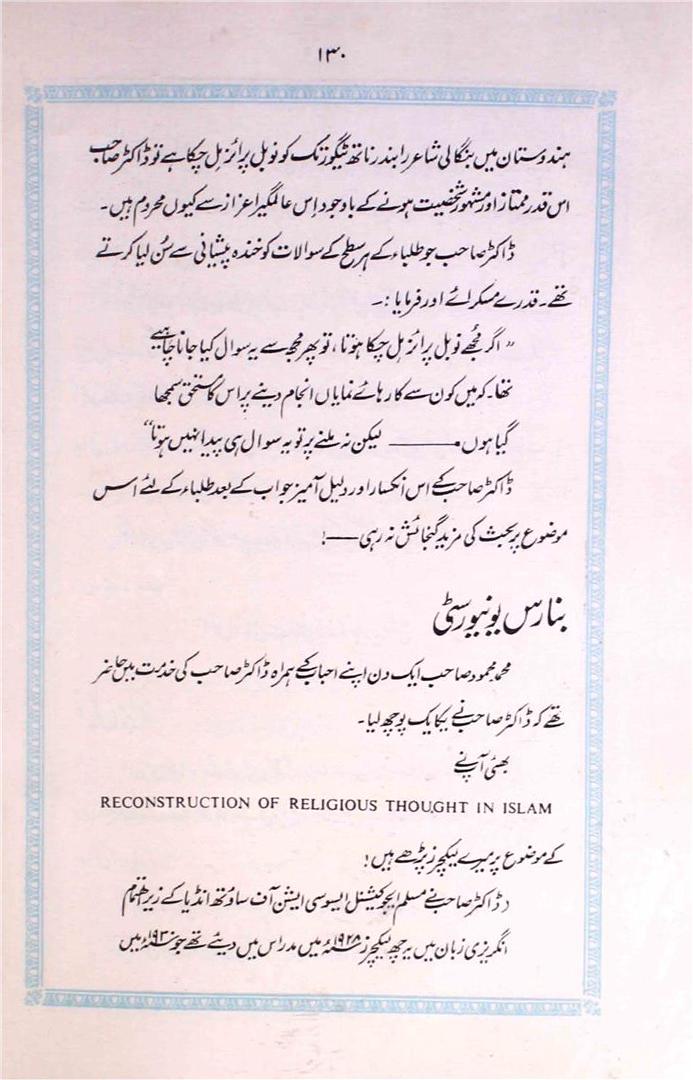 ۱۳۰
ہندوستان میں بنگالی شاعر رابندر ناتھ ٹیگور تک کو نوبل پرائز مل چکا ہے تو ڈاکٹر صاحب
اس قدر ممتاز اور مشہور شخصیت ہونے کے باوجود اِس عالمگیر اعزاز سے کیوں محروم ہیں۔
ڈاکٹر صاحب جو طلباء کے ہر سطح کے سوالات کو خندہ پیشانی سے سُن لیا کرتے
تھے۔ قدرے مسکرائے اور فرمایا :۔
" اگر مجھے نوبل پرائز مل چکا ہوتا، تو پھر مجھ سے یہ سوال کیا جانا چاہیے
تھا۔ کہ میں کون سے کار ہائے نمایاں انجام دینے پر اس کا مستحق سمجھا
گیا ہوں۔ ——— لیکن نہ ملنے پر تو یہ سوال ہی پیدا نہیں ہوتا"
ڈاکٹر صاحب کے اس انکسار اور دلیل آمیز جواب کے بعد طلباء کے لئے اس
موضوع پر بحث کی مزید گنجائش نہ رہی ——!
بنارس یونیورسٹی
محمد محمود صاحب ایک دن اپنے احباب کے ہمراہ ڈاکٹر صاحب کی خدمت میں حاضر
تھے کہ ڈاکٹر صاحب نے یکایک پوچھ لیا۔
بھئی آپ نے
RECONSTRUCTION OF RELIGIOUS THOUGHT IN ISLAM
کے موضوع پر میرے لیکچرز پڑھے ہیں!
(ڈاکٹر صاحب نے مسلم ایجوکیشنل ایسوسی ایشن آف ساؤتھ انڈیا کے زیر اہتمام
انگریزی زبان میں یہ چھ لیکچرز ۱۹۲۸ء میں مدراس میں دیئے تھے جو ۱۹۳۰ء میں